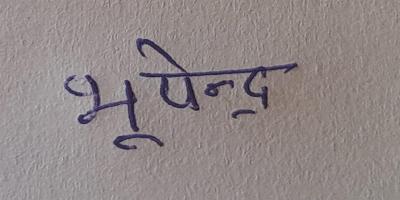 भूपेन्द्र